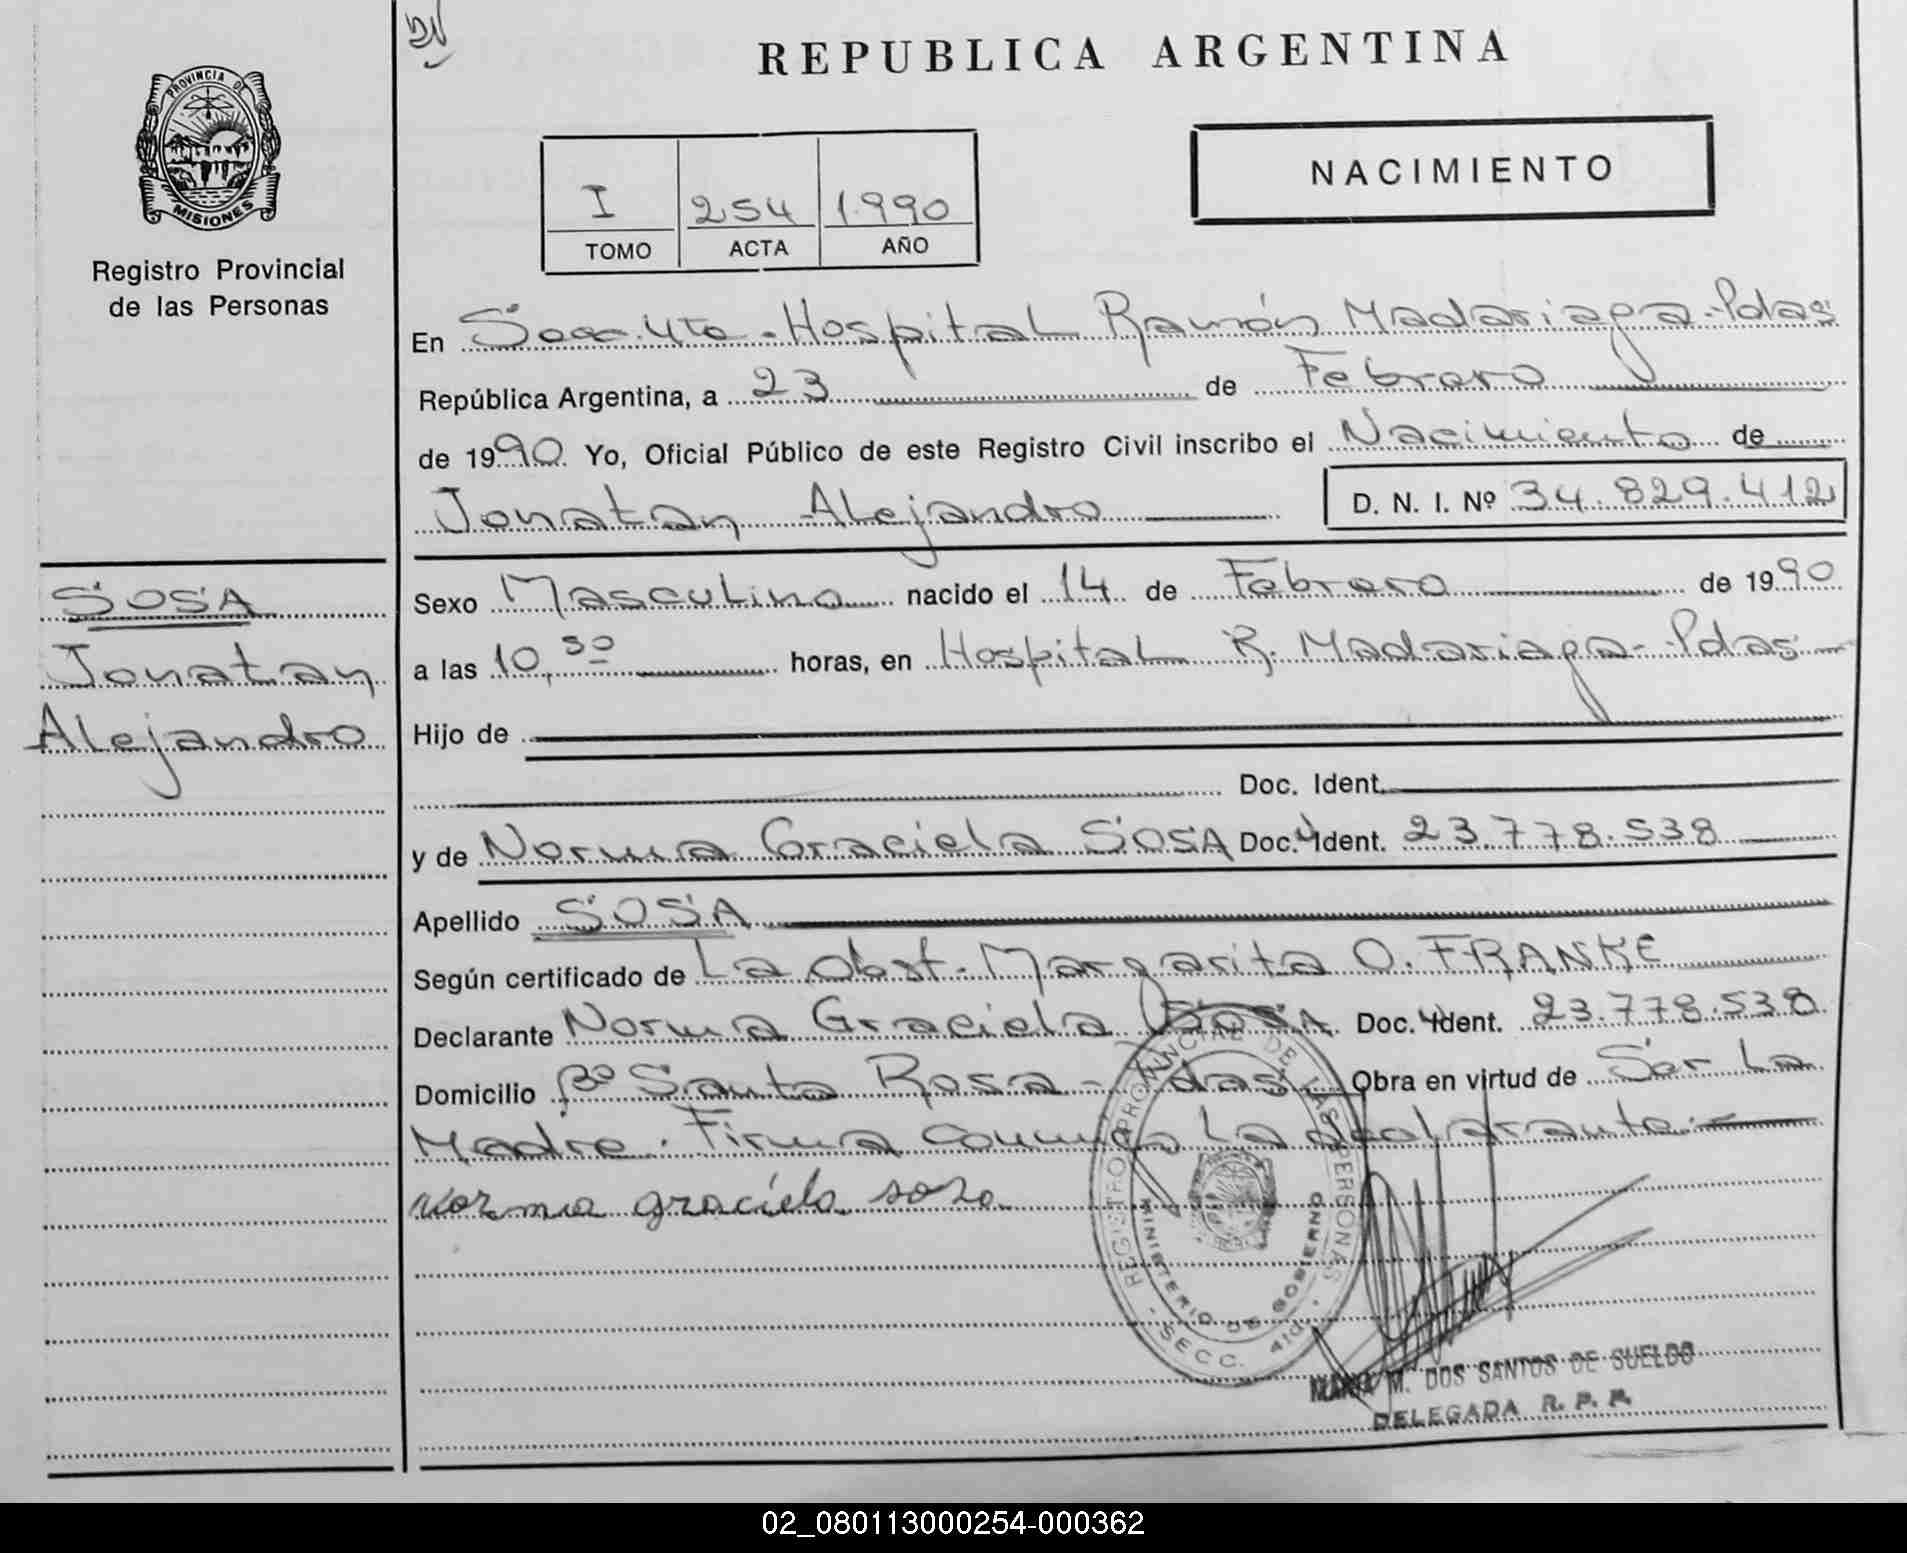 DN
REPUBLICA ARGENTINA
PROVINCIA DE
MISIONES
Registro Provincial
de las Personas
NACIMIENTO
I 254 1.990
TOMO ACTA AÑO
En Secc. 4ta - Hospital Ramón Madariaga - Pdas
República Argentina, a 23 de Febrero
de 1990 Yo, Oficial Público de este Registro Civil inscribo el Nacimiento de
Jonatan Alejandro D. N. I. Nº 34.829.412
SOSA
Jonatan
Alejandro
Sexo Masculino nacido el 14 de Febrero de 1990
a las 10,30 horas, en Hospital R. Madariaga - Pdas
Hijo de
Doc. Ident.
y de Norma Graciela SOSA Doc. Ident. 23.778.538
Apellido SOSA
Según certificado de La obst. Margarita O. FRANKE
Declarante Norma Graciela SOSA Doc. Ident. 23.778.538
Domicilio Bº Santa Rosa - Pdas Obra en virtud de Ser La
Madre. Firma conmigo La declarante.
norma graciela sosa
REGISTRO PROVINCIAL DE LAS PERSONAS
MINISTERIO DE GOBIERNO
SECC. 4ta
MARIA M. DOS SANTOS DE SUELDO
DELEGADA R. P. P.
02_080113000254-000362